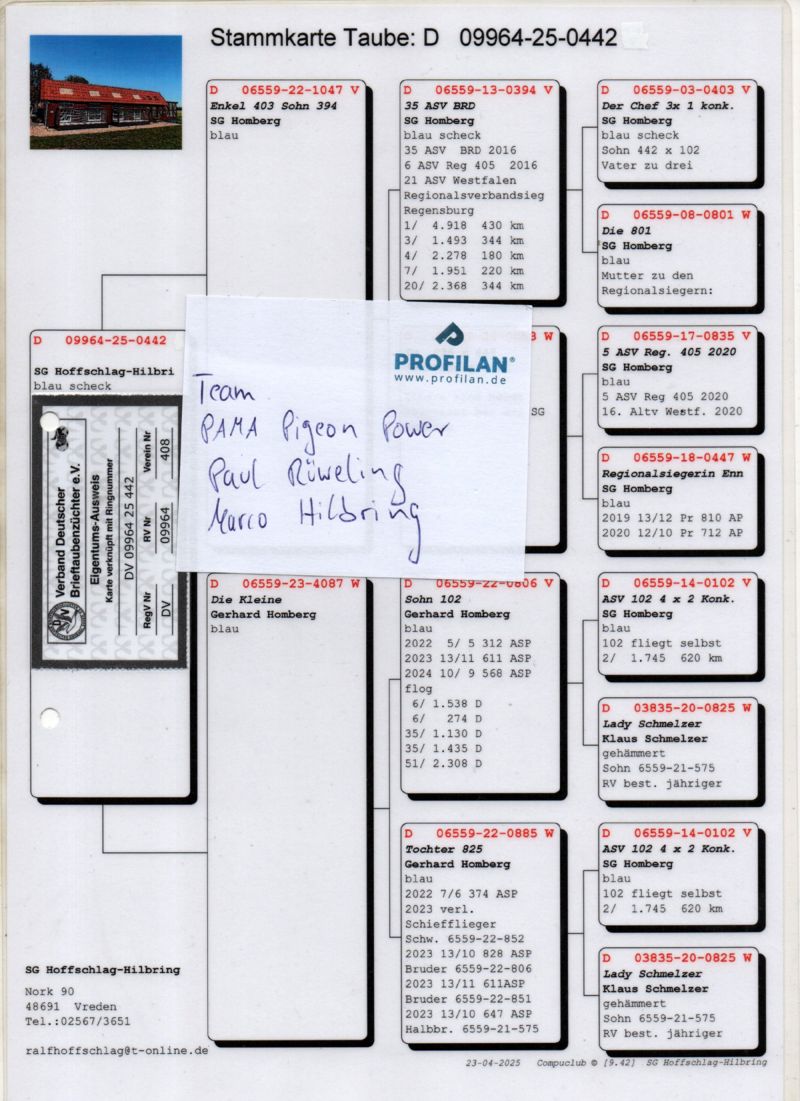 Stammkarte Taube: D 09964-25-0442
D 09964-25-0442
SG Hoffschlag-Hilbri
blau scheck
Verband Deutscher
Brieftaubenzüchter e.V.
Eigentums-Ausweis
Karte verknüpft mit Ringnummer
DV 09964 25 442
RegV Nr RV Nr Verein Nr
DV 09964 408
Team
PAMA Pigeon Power
Paul Rüweling
Marco Hilbring
PROFILAN®
www.profilan.de
D 06559-22-1047 V
Enkel 403 Sohn 394
SG Homberg
blau
D 06559-23-4087 W
Die Kleine
Gerhard Homberg
blau
D 06559-13-0394 V
35 ASV BRD
SG Homberg
blau scheck
35 ASV BRD 2016
6 ASV Reg 405 2016
21 ASV Westfalen
Regionalsverbandsieg
Regensburg
1/ 4.918 430 km
3/ 1.493 344 km
4/ 2.278 180 km
7/ 1.951 220 km
20/ 2.368 344 km
W
SG
D 06559-22-0806 V
Sohn 102
Gerhard Homberg
blau
2022 5/ 5 312 ASP
2023 13/11 611 ASP
2024 10/ 9 568 ASP
flog
6/ 1.538 D
6/ 274 D
35/ 1.130 D
35/ 1.435 D
51/ 2.308 D
D 06559-22-0885 W
Tochter 825
Gerhard Homberg
blau
2022 7/6 374 ASP
2023 verl.
Schiefflieger
Schw. 6559-22-852
2023 13/10 828 ASP
Bruder 6559-22-806
2023 13/11 611ASP
Bruder 6559-22-851
2023 13/10 647 ASP
Halbbr. 6559-21-575
D 06559-03-0403 V
Der Chef 3x 1 konk.
SG Homberg
blau scheck
Sohn 442 x 102
Vater zu drei
D 06559-08-0801 W
Die 801
SG Homberg
blau
Mutter zu den
Regionalsiegern:
D 06559-17-0835 V
5 ASV Reg. 405 2020
SG Homberg
blau
5 ASV Reg 405 2020
16. Altv Westf. 2020
D 06559-18-0447 W
Regionalsiegerin Enn
SG Homberg
blau
2019 13/12 Pr 810 AP
2020 12/10 Pr 712 AP
D 06559-14-0102 V
ASV 102 4 x 2 Konk.
SG Homberg
blau
102 fliegt selbst
2/ 1.745 620 km
D 03835-20-0825 W
Lady Schmelzer
Klaus Schmelzer
gehämmert
Sohn 6559-21-575
RV best. jähriger
D 06559-14-0102 V
ASV 102 4 x 2 Konk.
SG Homberg
blau
102 fliegt selbst
2/ 1.745 620 km
D 03835-20-0825 W
Lady Schmelzer
Klaus Schmelzer
gehämmert
Sohn 6559-21-575
RV best. jähriger
SG Hoffschlag-Hilbring
Nork 90
48691 Vreden
Tel.:02567/3651
ralfhoffschlag@t-online.de
23-04-2025 Compuclub © [9.42] SG Hoffschlag-Hilbring